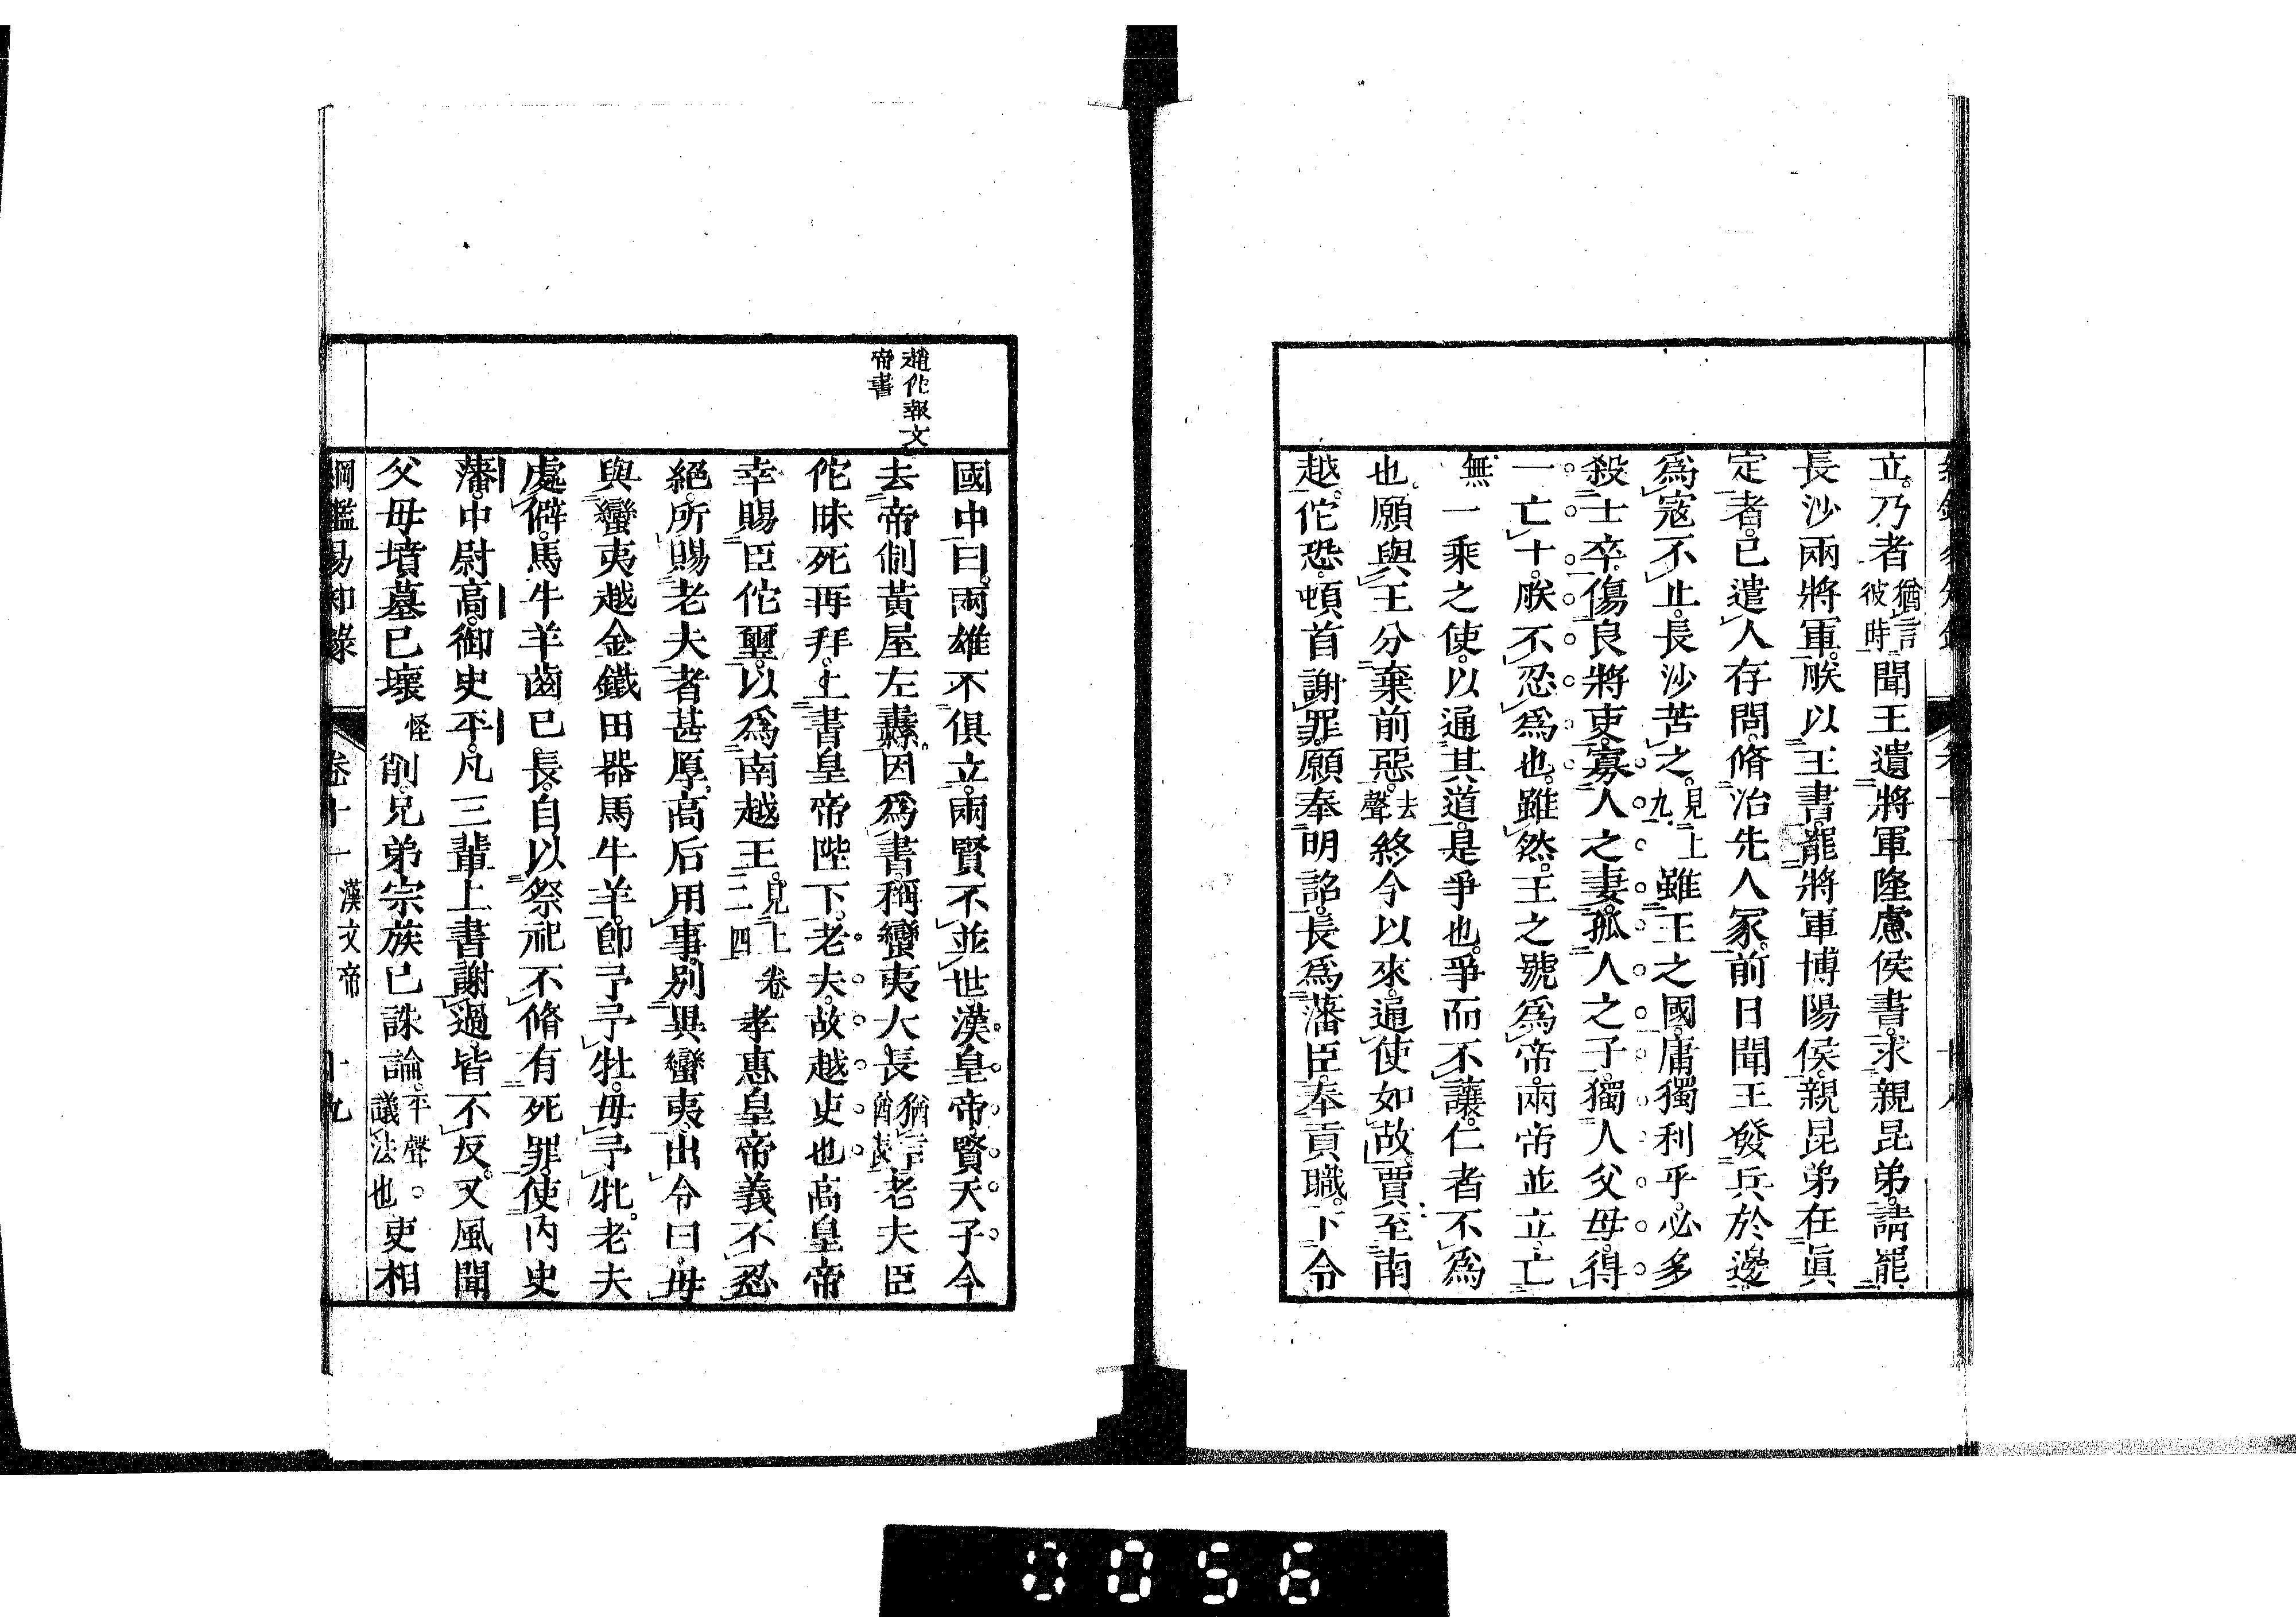 立乃者猶言彼時聞王遺將軍隆慮侯書求親昆弟請罷
長沙兩將軍朕以王書罷將軍博陽侯親昆弟在眞
定者已遣人存問脩治先人冢前日聞王發兵於邊
爲寇不止長沙苦之見上九雖王之國庸獨利乎必多
殺士卒傷良將吏寡人之妻孤人之子獨人父母得
一亡十朕不忍爲也雖然王之號爲帝兩帝並立亡
無一乘之使以通其道是爭也爭而不讓仁者不爲
也願與王分棄前惡去聲終今以來通使如故賈至南
越佗恐頓首謝罪願奉明詔長爲藩臣奉貢職下令
趙佗報文
帝書
國中曰兩雄不俱立兩賢不並世漢皇帝賢天子今
去帝制黃屋左纛因爲書稱蠻夷大長猶言酋長老夫臣
佗昧死再拜上書皇帝陛下老夫故越吏也高皇帝
幸賜臣佗璽以爲南越王見上卷二四孝惠皇帝義不忍
絕所賜老夫者甚厚高后用事別異蠻夷出令曰毋
與蠻夷越金鐵田器馬牛羊卽予予牡毋予牝老夫
處僻馬牛羊齒已長自以祭祀不脩有死罪使內史
藩中尉高御史平凡三輩上書謝過皆不反又風聞
父母墳墓已壞怪削兄弟宗族已誅論平聲。議法也吏相
綱鑑易知錄 卷十一 漢文帝 十九